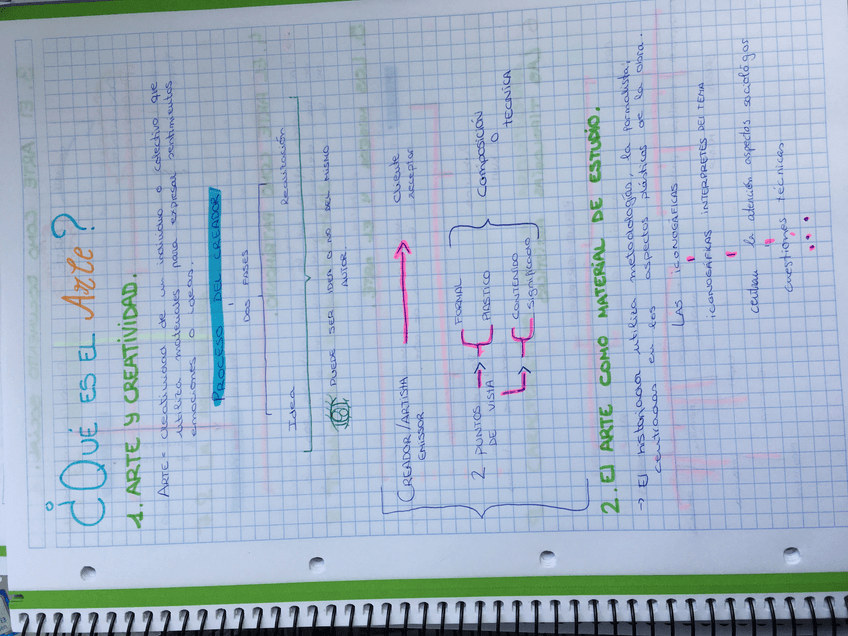 ¿QUÉ ES EL Arte?
1. ARTE Y CREATIVIDAD.
ARTE = creatividad de un individuo o colectivo que
utiliza materiales para expresar sentimientos
emociones o ideas.
PROCESO DEL CREADOR
DOS FASES
Idea Realización
PUEDE SER IDEA O NO DEL MISMO
AUTOR
CREADOR/ARTISTA → Cliente
EMISOR receptor
2 PUNTOS → FORMAL
DE VISTA PLÁSTICO
→ CONTENIDO
Significado
Composición
O
TÉCNICA
2. El ARTE COMO MATERIAL DE ESTUDIO.
→ El historiador utiliza metodologías, la formalista,
centradas en los aspectos plásticos de la obra.
LAS ICONOGRÁFICAS
ICONOGRÁFIAS INTERPRETES DEL TEMA
centran la atención aspectos sociológos
cuestiones técnicas
...